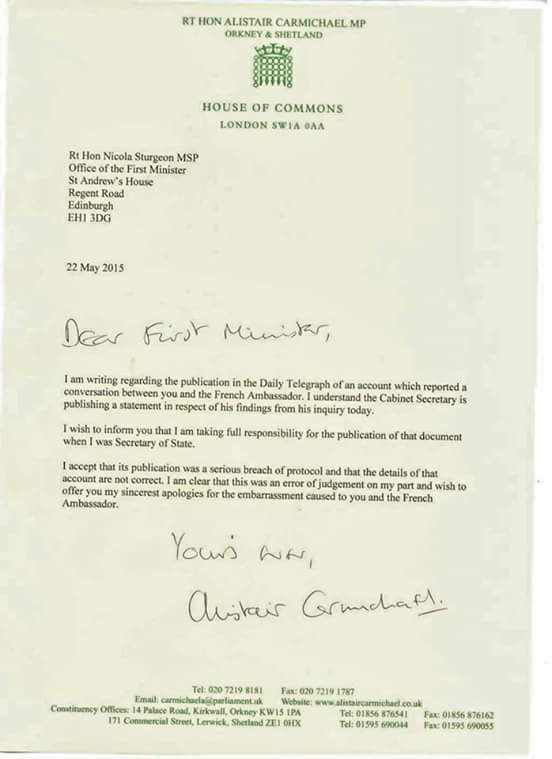 RT HON ALISTAIR CARMICHAEL MP
ORKNEY & SHETLAND
HOUSE OF COMMONS
LONDON SW1A 0AA
Rt Hon Nicola Sturgeon MSP
Office of the First Minister
St Andrew's House
Regent Road
Edinburgh
EH1 3DG
22 May 2015
Dear First Minister,
I am writing regarding the publication in the Daily Telegraph of an account which reported a
conversation between you and the French Ambassador. I understand the Cabinet Secretary is
publishing a statement in respect of his findings from his inquiry today.
I wish to inform you that I am taking full responsibility for the publication of that document
when I was Secretary of State.
I accept that its publication was a serious breach of protocol and that the details of that
account are not correct. I am clear that this was an error of judgement on my part and wish to
offer you my sincerest apologies for the embarrassment caused to you and the French
Ambassador.
Yours ever,
Alistair Carmichael.
Tel: 020 7219 8181 Fax: 020 7219 1787
Email: carmichaela@parliament.uk Website: www.alistaircarmichael.co.uk
Constituency Offices: 14 Palace Road, Kirkwall, Orkney KW15 1PA Tel: 01856 876541 Fax: 01856 876162
171 Commercial Street, Lerwick, Shetland ZE1 0HX Tel: 01595 690044 Fax: 01595 690055